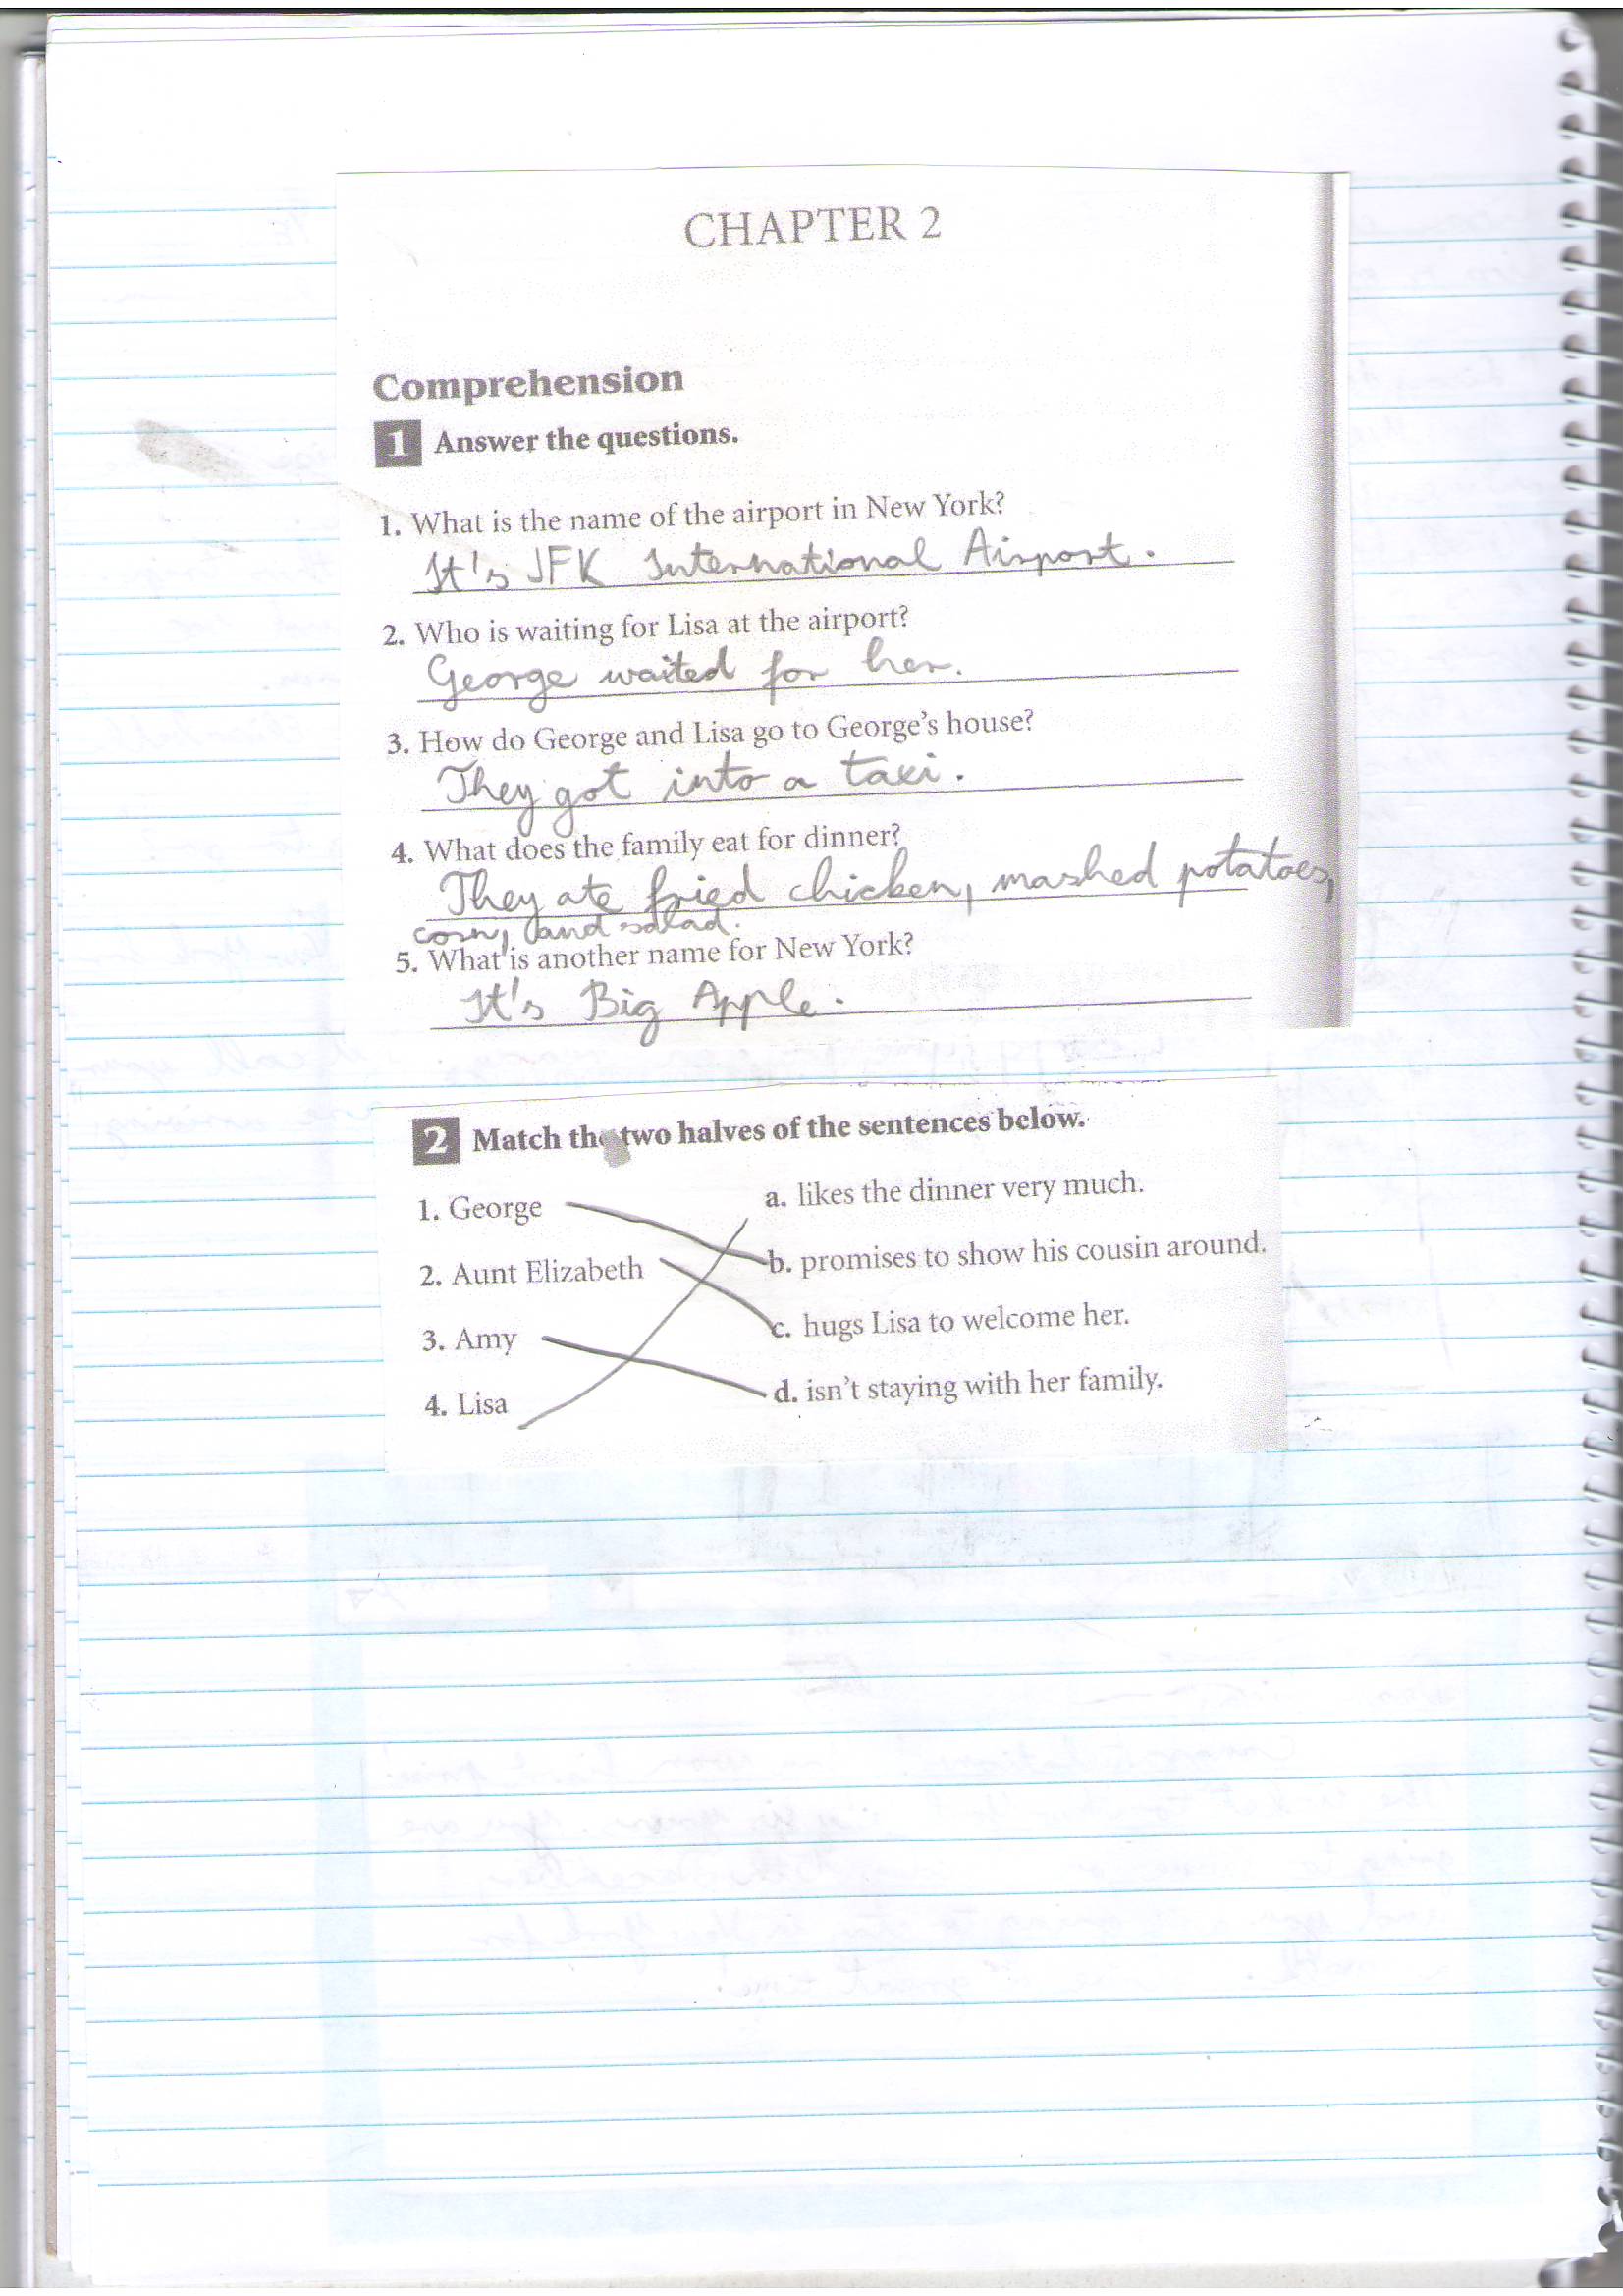 CHAPTER 2
Comprehension
1 Answer the questions.
1. What is the name of the airport in New York?
It's JFK International Airport.
2. Who is waiting for Lisa at the airport?
George waited for her.
3. How do George and Lisa go to George's house?
They got into a taxi.
4. What does the family eat for dinner?
They ate fried chicken, mashed potatoes,
corn, and salad.
5. What is another name for New York?
It's Big Apple.
2 Match the two halves of the sentences below.
1. George
a. likes the dinner very much.
2. Aunt Elizabeth
b. promises to show his cousin around.
3. Amy
c. hugs Lisa to welcome her.
4. Lisa
d. isn't staying with her family.